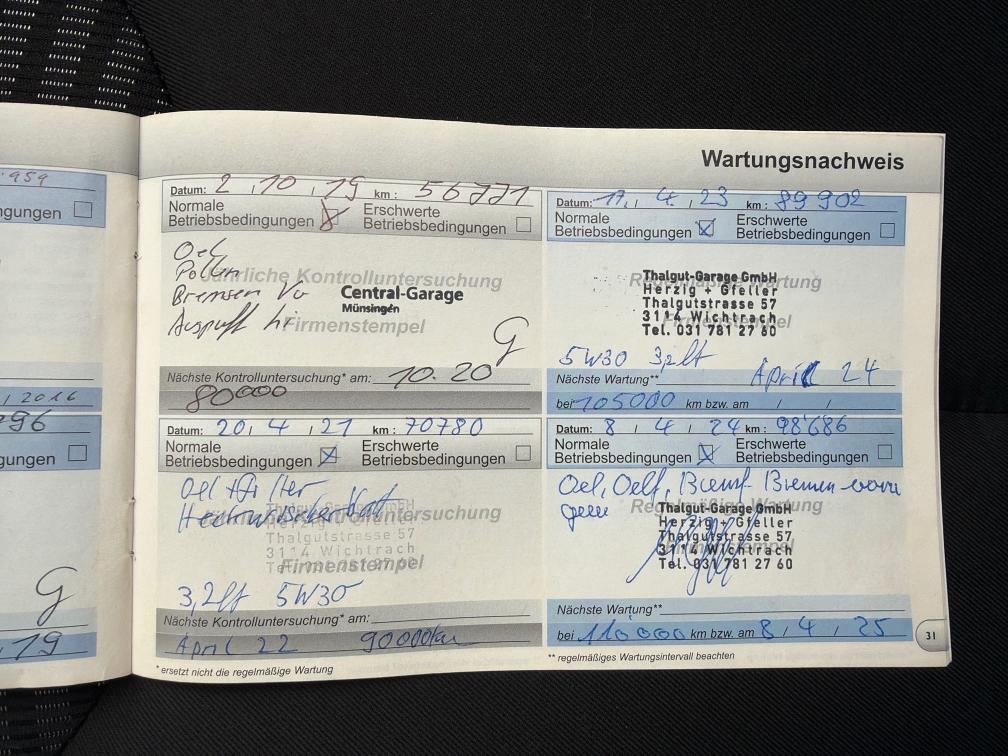 959
ngungen
/ 2016
296
gungen
G
19
Wartungsnachweis
Datum: 2 , 10 , 19 km : 56771
Normale Betriebsbedingungen
Erschwerte Betriebsbedingungen
Oel
Pollen
Bremsen Vo
Auspuff hi
Jährliche Kontrolluntersuchung
Central-Garage
Münsingen
Firmenstempel
G
Nächste Kontrolluntersuchung* am: 10. 20
80000
Datum: 20 , 4 , 21 km : 70780
Normale Betriebsbedingungen
Erschwerte Betriebsbedingungen
Oel + Filter
Heckwischerblatt
Jährliche Kontrolluntersuchung
Thalgut-Garage GmbH
Herzig + Gfeller
Thalgutstrasse 57
3114 Wichtrach
Tel. 031 781 27 60
Firmenstempel
3,2lt 5W30
Nächste Kontrolluntersuchung* am:
April 22 90000km
* ersetzt nicht die regelmäßige Wartung
Datum: 17, , 4 , 23 km : 89 902
Normale Betriebsbedingungen
Erschwerte Betriebsbedingungen
Regelmäßige Wartung
Thalgut-Garage GmbH
Herzig + Gfeller
Thalgutstrasse 57
3114 Wichtrach
Tel. 031 781 27 60
Firmenstempel
5W30 3,2lt
Nächste Wartung** April 24
bei 105000 km bzw. am / /
Datum: 8 , 4 , 24 km : 98'686
Normale Betriebsbedingungen
Erschwerte Betriebsbedingungen
Oel, Oelf, Bremsf. Bremsen vorn
Regelmäßige Wartung
Thalgut-Garage GmbH
Herzig + Gfeller
Thalgutstrasse 57
3114 Wichtrach
Tel. 031 781 27 60
Firmenstempel
Nächste Wartung**
bei 110000 km bzw. am 8 / 4 / 25
** regelmäßiges Wartungsintervall beachten
31